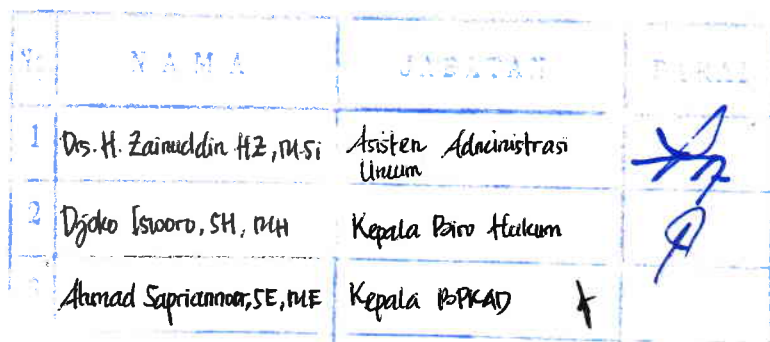 No NAMA JABATAN PARAF
1 Drs. H. Zainuddin HZ, M.Si Asisten Administrasi
Umum
2 Djoko Isworo, SH, MH Kepala Biro Hukum
3 Ahmad Sapriannoor, SE, ME Kepala BPKAD